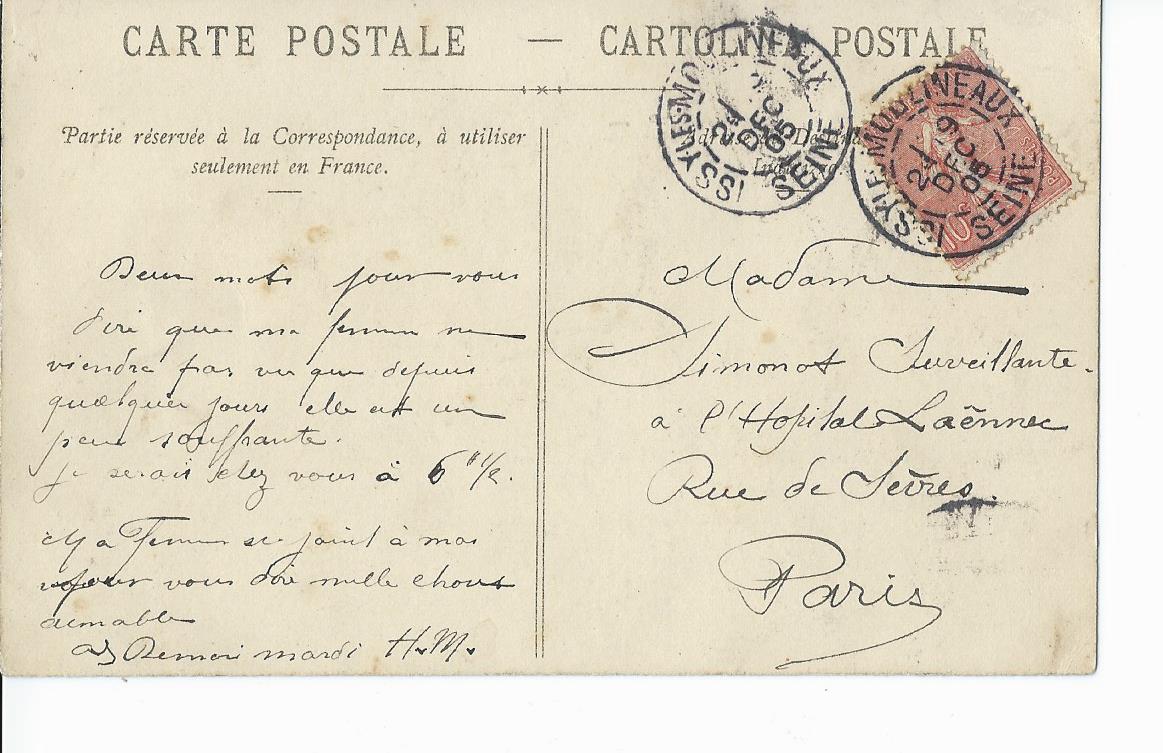 CARTE POSTALE — CARTOLINA POSTALE
Partie réservée à la Correspondance, à utiliser
seulement en France.
ISSY-LES-MOULINEAUX
24
DEC
05
SEINE
ISSY-LES-MOULINEAUX
DEC
05
SEINE
10c
Deux mots pour vous
dire que ma femme ne
viendra pas vu que depuis
quelques jours elle est un
peu souffrante.
je serais chez vous à 6h 1/2.
Ma Femme se joint à moi
pour vous dire mille choses
aimable
mardi H.M.
Madame
Simonot Surveillante
à l'Hopital Laënnec
Rue de Sèvres.
Paris